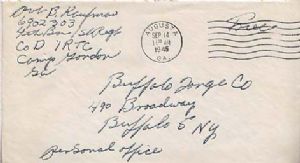 Pvt B. Kaufman
6902303
Co D IRTC
Camp Gordon
Ga
AUGUSTA
SEP 14
1945
GA.
Free
Buffalo Forge Co
490 Broadway
Buffalo 5 NY
Personal office